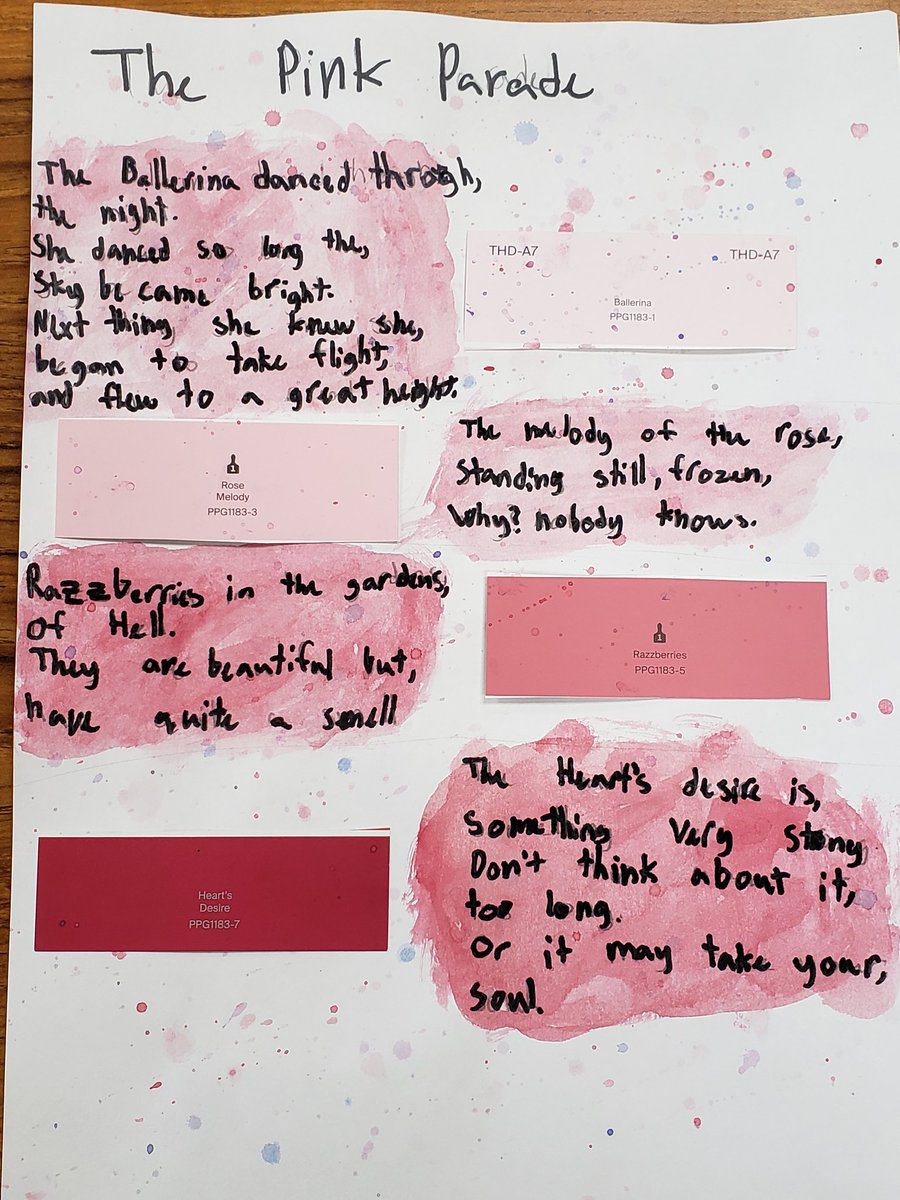 The Pink Parade
The Ballerina danced through,
the night.
She danced so long the,
Sky be came bright.
Next thing she knew she,
began to take flight,
and flew to a great height.
THD-A7 THD-A7
Ballerina
PPG1183-1
Rose
Melody
PPG1183-3
The melody of the rose,
Standing still, frozen,
Why? nobody knows.
Razzberries in the gardens,
Of Hell.
They are beautiful but,
have quite a smell
1
Razzberries
PPG1183-5
Heart's
Desire
PPG1183-7
The Heart's desire is,
Something very stong
Don't think about it,
too long.
Or it may take your,
soul.